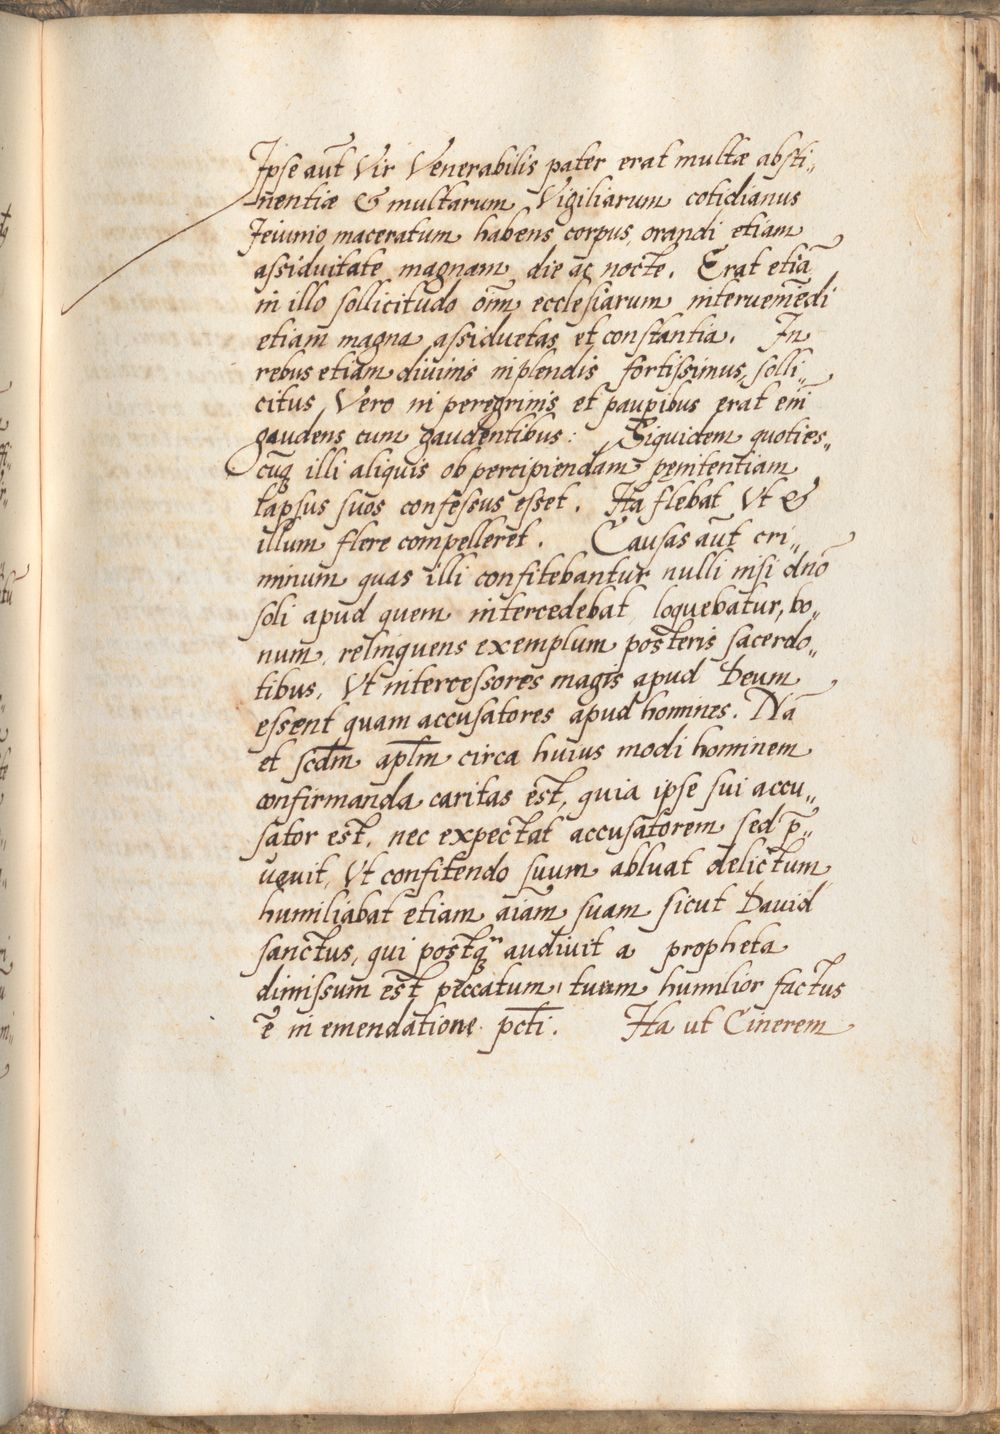 Ipse aūt Vir Venerabilis pater erat multæ absti„
nentiæ & multarum Vigiliarum cotidianus
Jeiunio maceratum habens corpus, orandi etiam
assiduitate magnam die ac nocte. Erat etiā
in illo sollicitudo oīm ecclesiarum interueniēdi
etiam magna assiduetas et constantia. In
rebus etiam diuinis inplendis fortissimus, solli„
citus Vero in peregrinis et paupibus erat eni̅
gaudens cum gaudentibus: Siquidem quoties„
cūq illi aliquis ob percipiendam penitentiam
lapsus suos confessus esset. Ita flebat Vt &
illum flere compelleret. Causas aūt cri„
minum quas illi confitebantur nulli nisi dn̄o
soli apud quem intercedebat loquebatur, bo„
num relinquens exemplum posteris sacerdo„
tibus, Vt intercessores magis apud Deum
essent quam accusatores apud homines. Nā
et scd̄m apl̄m circa huius modi hominem
confirmanda caritas est, quia ipse sui accu„
sator est, nec expectat accusatorem sed p̄„
uenit, Vt confitendo suum abluat delictum
humiliabat etiam aīam suam sicut Dauid
sanctus, qui postq̄ audiuit a propheta
dimissum est peccatum tuum humilior factus
ē in emendatione pcti̅. Ita ut Cinerem